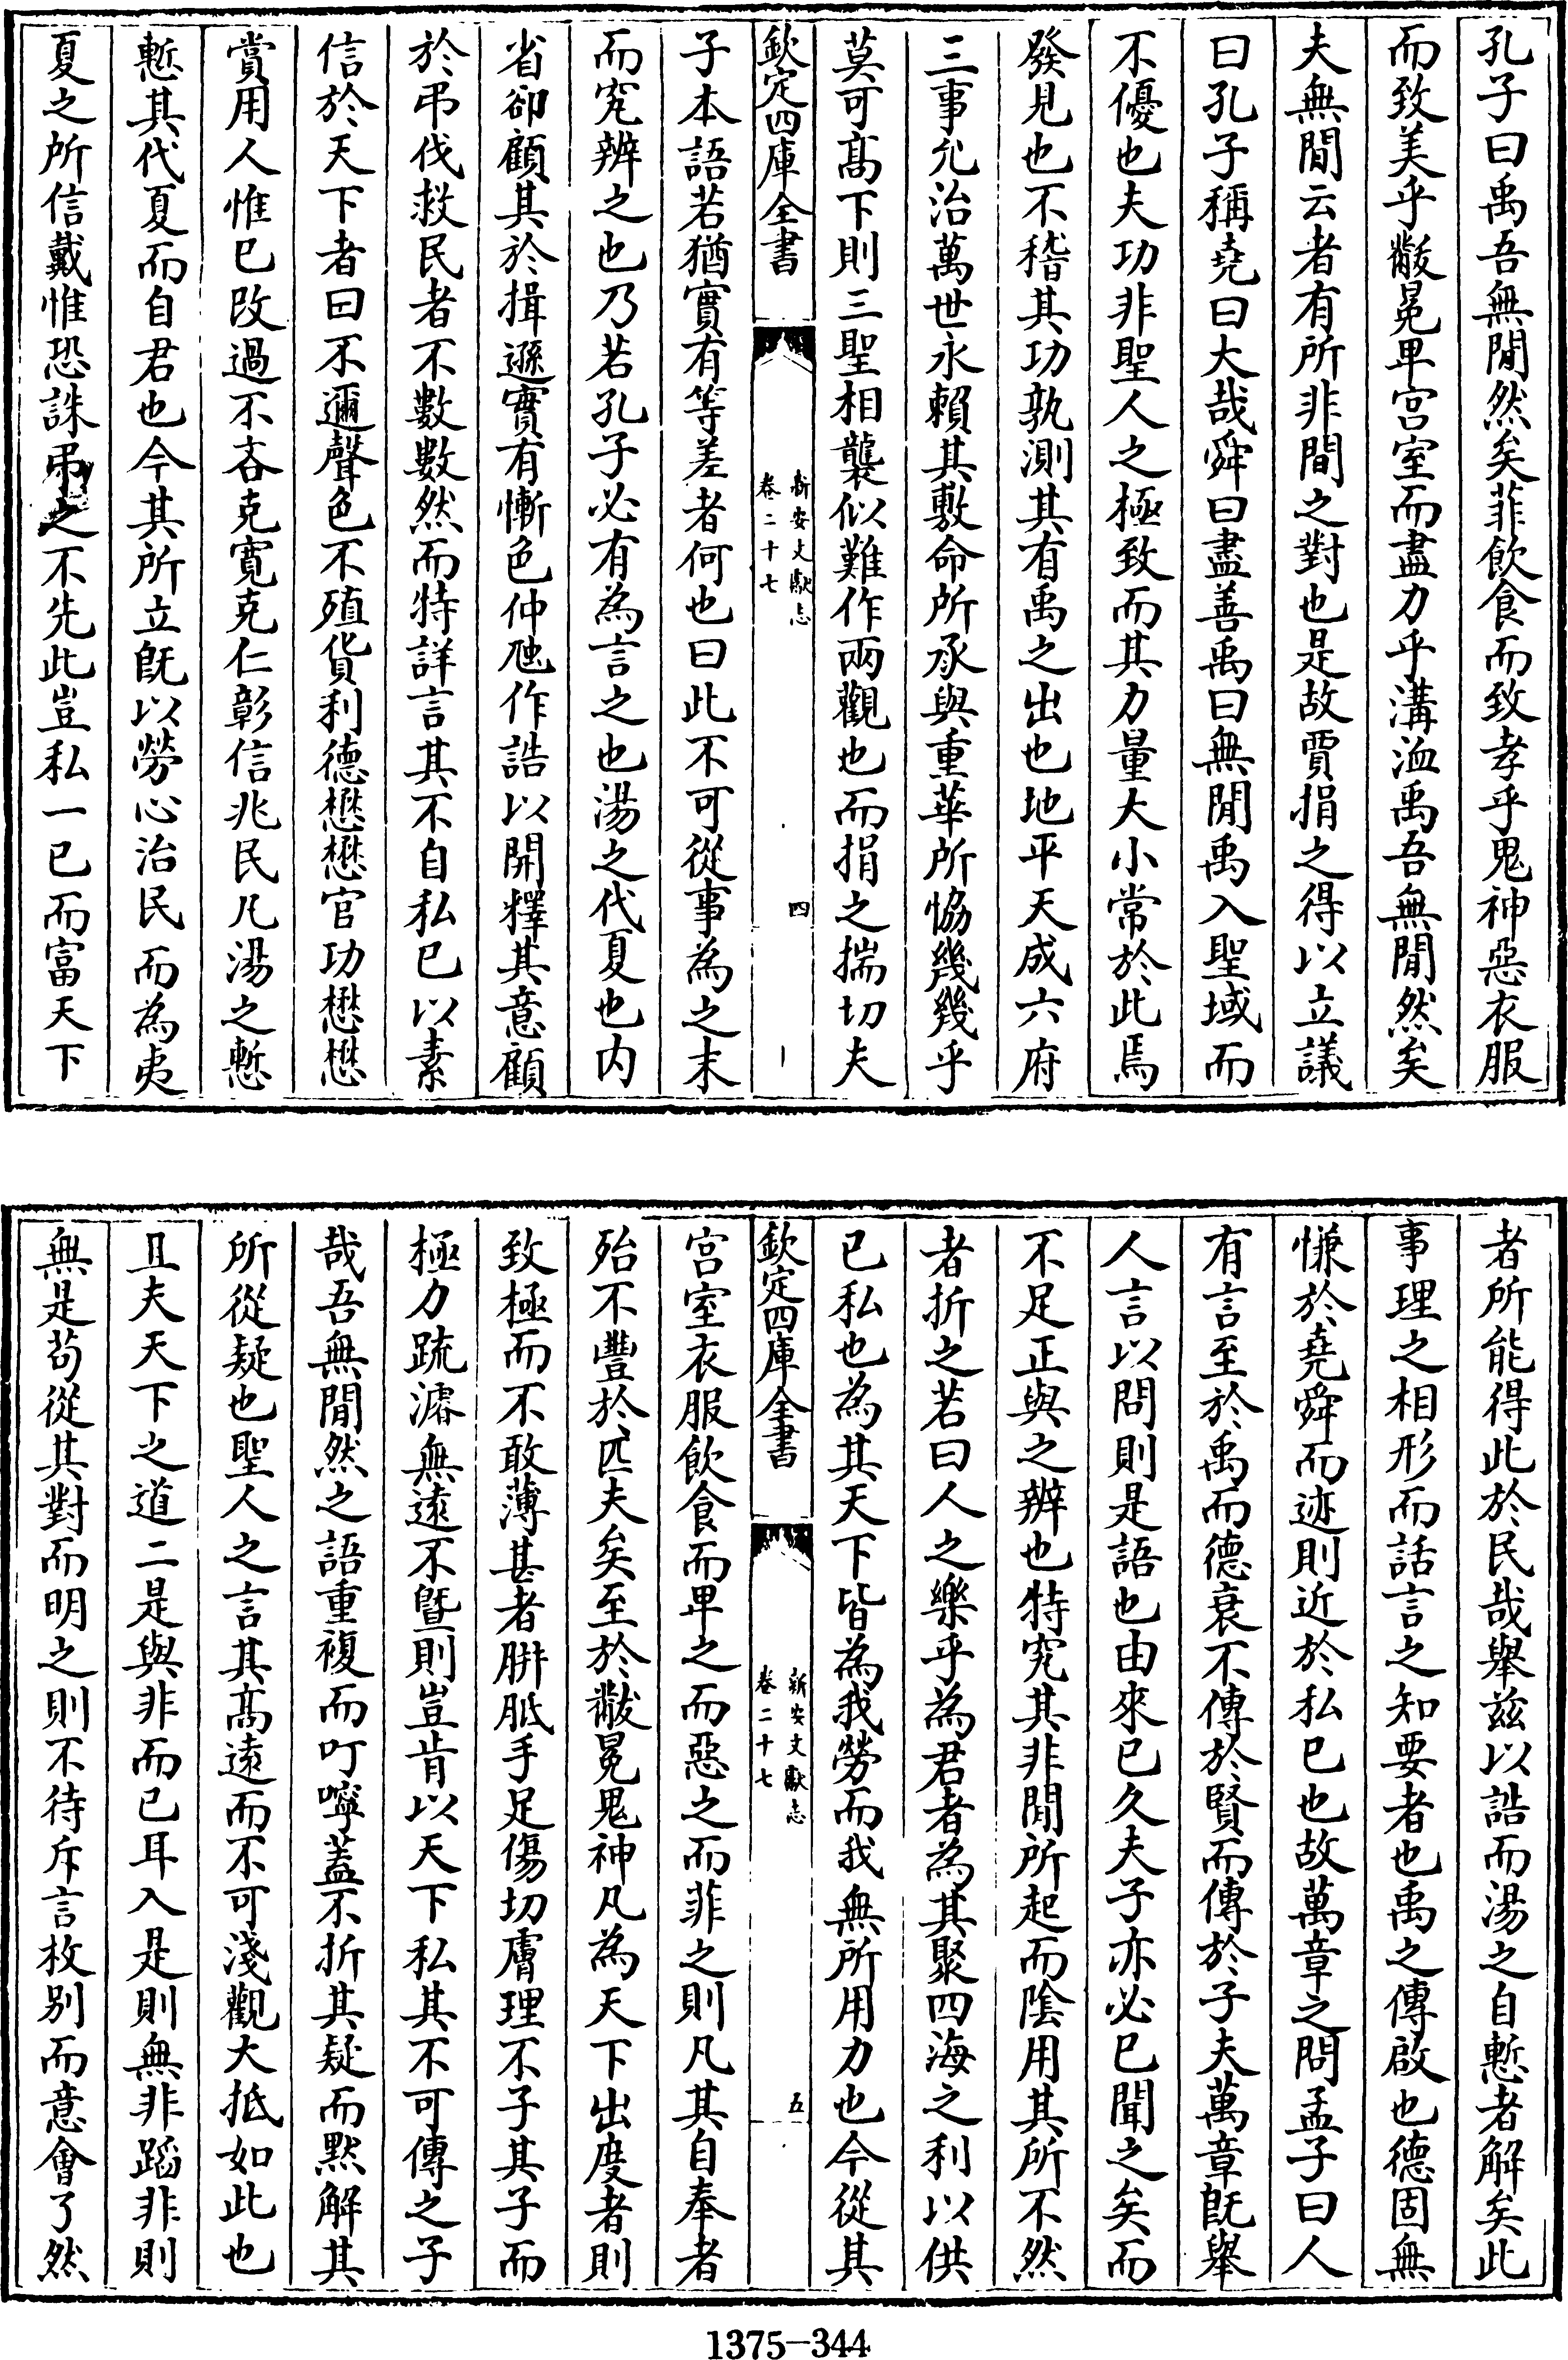 孔子曰禹吾無閒然矣菲飲食而致孝乎鬼神惡衣服
而致美乎黻冕卑宫室而盡力乎溝洫禹吾無閒然矣
夫無閒云者有所非間之對也是故賈捐之得以立議
曰孔子稱堯曰大哉舜曰盡善禹曰無閒禹入聖域而
不優也夫功非聖人之極致而其力量大小常於此焉
發見也不稽其功孰測其有禹之出也地平天成六府
三事允治萬世永賴其敷命所承與重華所恊幾幾乎
莫可髙下則三聖相襲似難作兩觀也而捐之揣切夫
欽定四庫全書
新安文獻志
卷二十七
四
子本語若猶實有等差者何也曰此不可從事為之末
而究辨之也乃若孔子必有為言之也湯之代夏也内
省卻顧其於揖遜實有慚色仲虺作誥以開釋其意顧
於弔伐救民者不數數然而特詳言其不自私已以素
信於天下者曰不邇聲色不殖貨利德懋懋官功懋懋
賞用人惟已改過不吝克寛克仁彰信兆民凡湯之慙
慙其代夏而自君也今其所立旣以勞心治民而為夷
夏之所信戴惟恐誅弔之不先此豈私一已而富天下
者所能得此於民哉舉兹以誥而湯之自慙者解矣此
事理之相形而話言之知要者也禹之傳啟也德固無
慊於堯舜而迹則近於私已也故萬章之問孟子曰人
有言至於禹而德衰不傳於賢而傳於子夫萬章旣舉
人言以問則是語也由來已久夫子亦必已聞之矣而
不足正與之辨也特究其非閒所起而陰用其所不然
者折之若曰人之樂乎為君者為其聚四海之利以供
已私也為其天下皆為我勞而我無所用力也今從其
欽定四庫全書
新安文獻志
卷二十七
五
宫室衣服飲食而卑之而惡之而菲之則凡其自奉者
殆不豐於匹夫矣至於黻冕鬼神凡為天下出度者則
致極而不敢薄甚者胼胝手足傷切膚理不子其子而
極力疏濬無逺不曁則豈肯以天下私其不可傳之子
哉吾無閒然之語重複而叮嚀蓋不折其疑而黙解其
所從疑也聖人之言其髙逺而不可淺觀大抵如此也
且夫天下之道二是與非而已耳入是則無非蹈非則
無是苟從其對而明之則不待斥言枚别而意會了然
1375-344